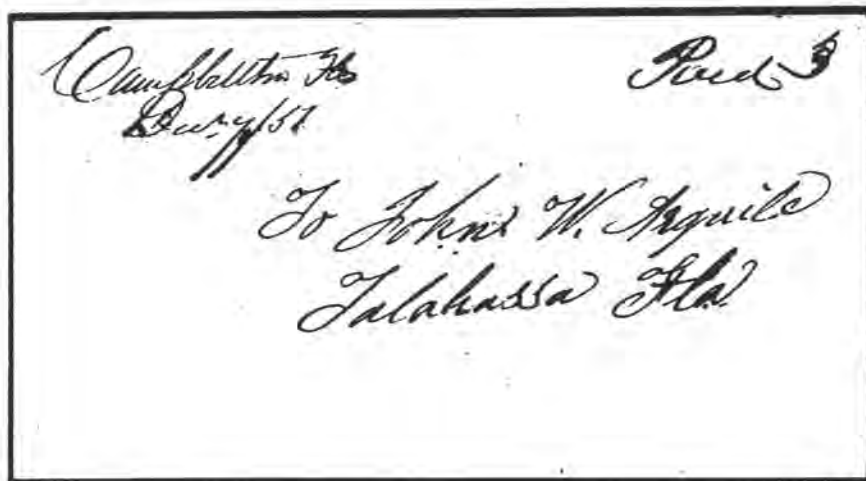 Campbellton Fla
Paid 3
To John W. Arguile
Talahassa Fla.